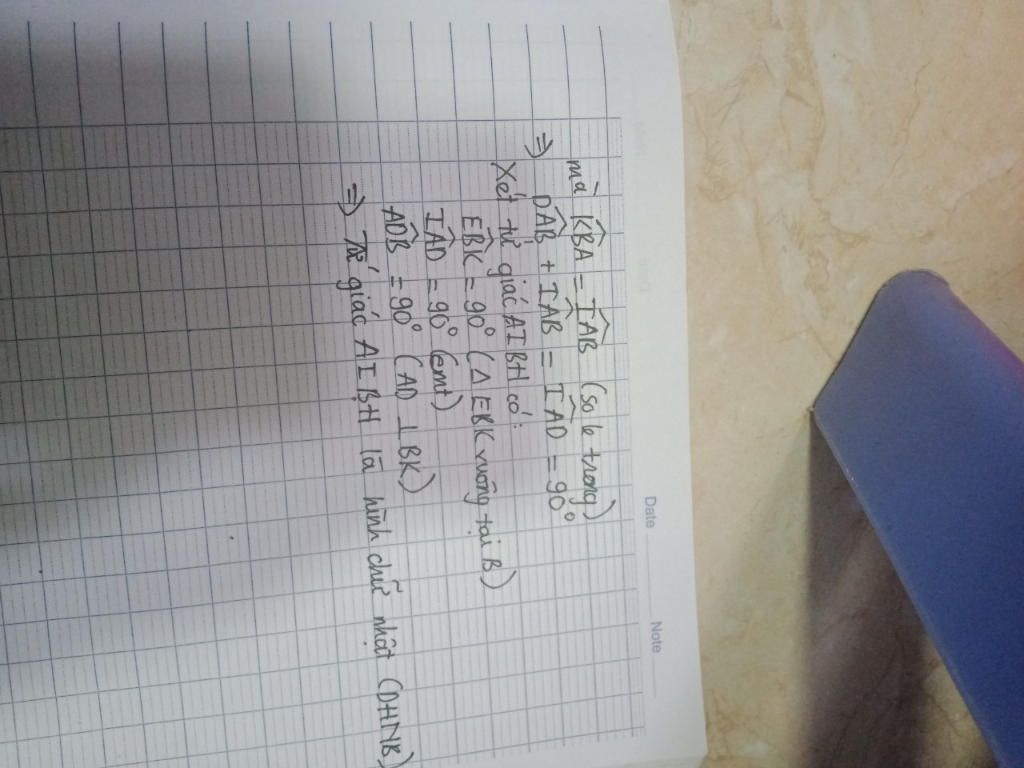 Date Note
mà K̂BA = ÎAB (so le trong)
⇒ D̂AB + ÎAB = ÎAD = 90°
Xét tứ giác AIBH có:
ÊBK = 90° (Δ EBK vuông tại B)
ÎAD = 90° (cmt)
ÂDB = 90° (AD ⊥ BK)
⇒ Tứ giác AIBH là hình chữ nhật (DHNB)